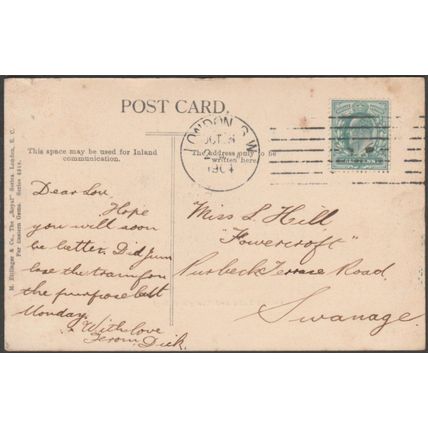 POST CARD.
This space may be used for Inland
communication.
The Address only to be
written here.
LONDON. S.W.
OCT
1904
M. Ettlinger & Co., The "Royal" Series London, E. C.
Far Eastern Gems. Series
Dear Lou,
Hope
you will soon
be better. Did Jim
lose the train for
the purpose last
Monday.
With love
From Dick.
Miss L. Hill
"Flowercroft"
Purbeck Terrace Road
Swanage.